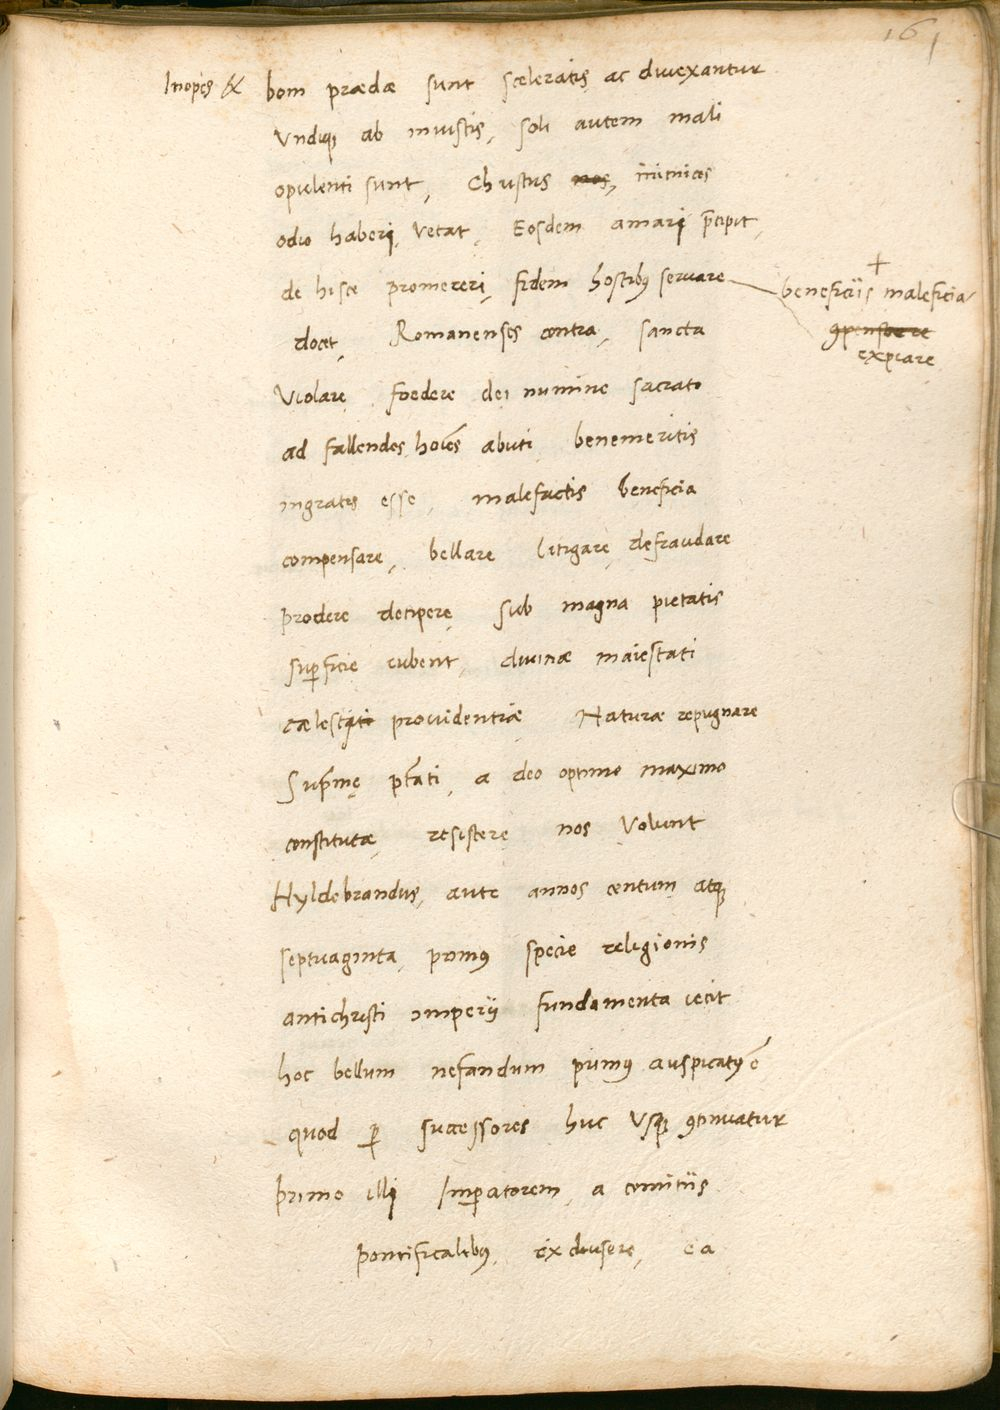 161
Inopes & boni prædæ sunt sceleratis ac divexantur
Vndiqꝫ ab iniustis, soli autem mali
opulenti sunt, Christus nos, inimicos
odio haberi vetat, Eosdem amari p̄cipit,
de hisce promereri, fidem hostibꝰ seruare
beneficiis maleficia
9pensare
expiare
docet, Romanenses contra, sancta
Violare, foedere dei numine sacrato
ad fallendos hoīes abuti, benemeritis
ingratos esse, malefactis beneficia
compensare, bellare litigare, defraudare
prodere decipere, sub magna pietatis
suꝑficie iubent, diuinæ maiestati
cælesti prouidentiæ Naturæ repugnare
Sup̄mę pt̄ati, a deo optimo maximo
constitutæ, resistere nos volunt
Hyldebrandus, ante annos centum atqꝫ
septuaginta, primꝰ specie religionis
antichristi imperij fundamenta iecit
hoc bellum nefandum primꝰ auspicatꝰ ē
quod ꝑ successores huc vsqꝫ 9tinuatur
primo illi Imꝑatorem, a comitiis
pontificalibꝰ, exclusere, ea